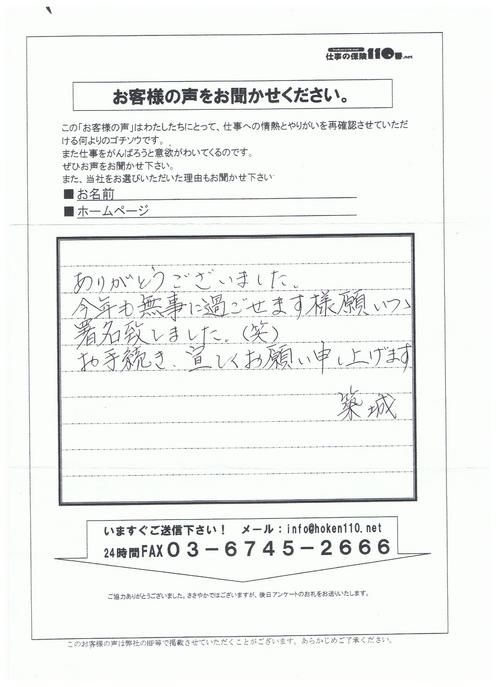 仕事の保険110番.net
お客様の声をお聞かせください。
この「お客様の声」はわたしたちにとって、仕事への情熱とやりがいを再確認させていただ
ける何よりのゴチソウです。
また仕事をがんばろうと意欲がわいてくるのです。
ぜひお声をお聞かせ下さい。
また、当社をお選びいただいた理由もお聞かせ下さい
■お名前
■ホームページ
ありがとうございました。
今年も無事に過ごせます様願いつゝ
署名致しました。(笑)
お手続き、宜しくお願い申し上げます
築城
いますぐご送信下さい! メール:info@hoken110.net
24時間FAX03-6745-2666
ご協力ありがとうございました。ささやかではございますが、後日アンケートのお礼をお送りいたします。
このお客様の声は弊社のHP等で掲載させていただくことがございます。あらかじめご了承ください。